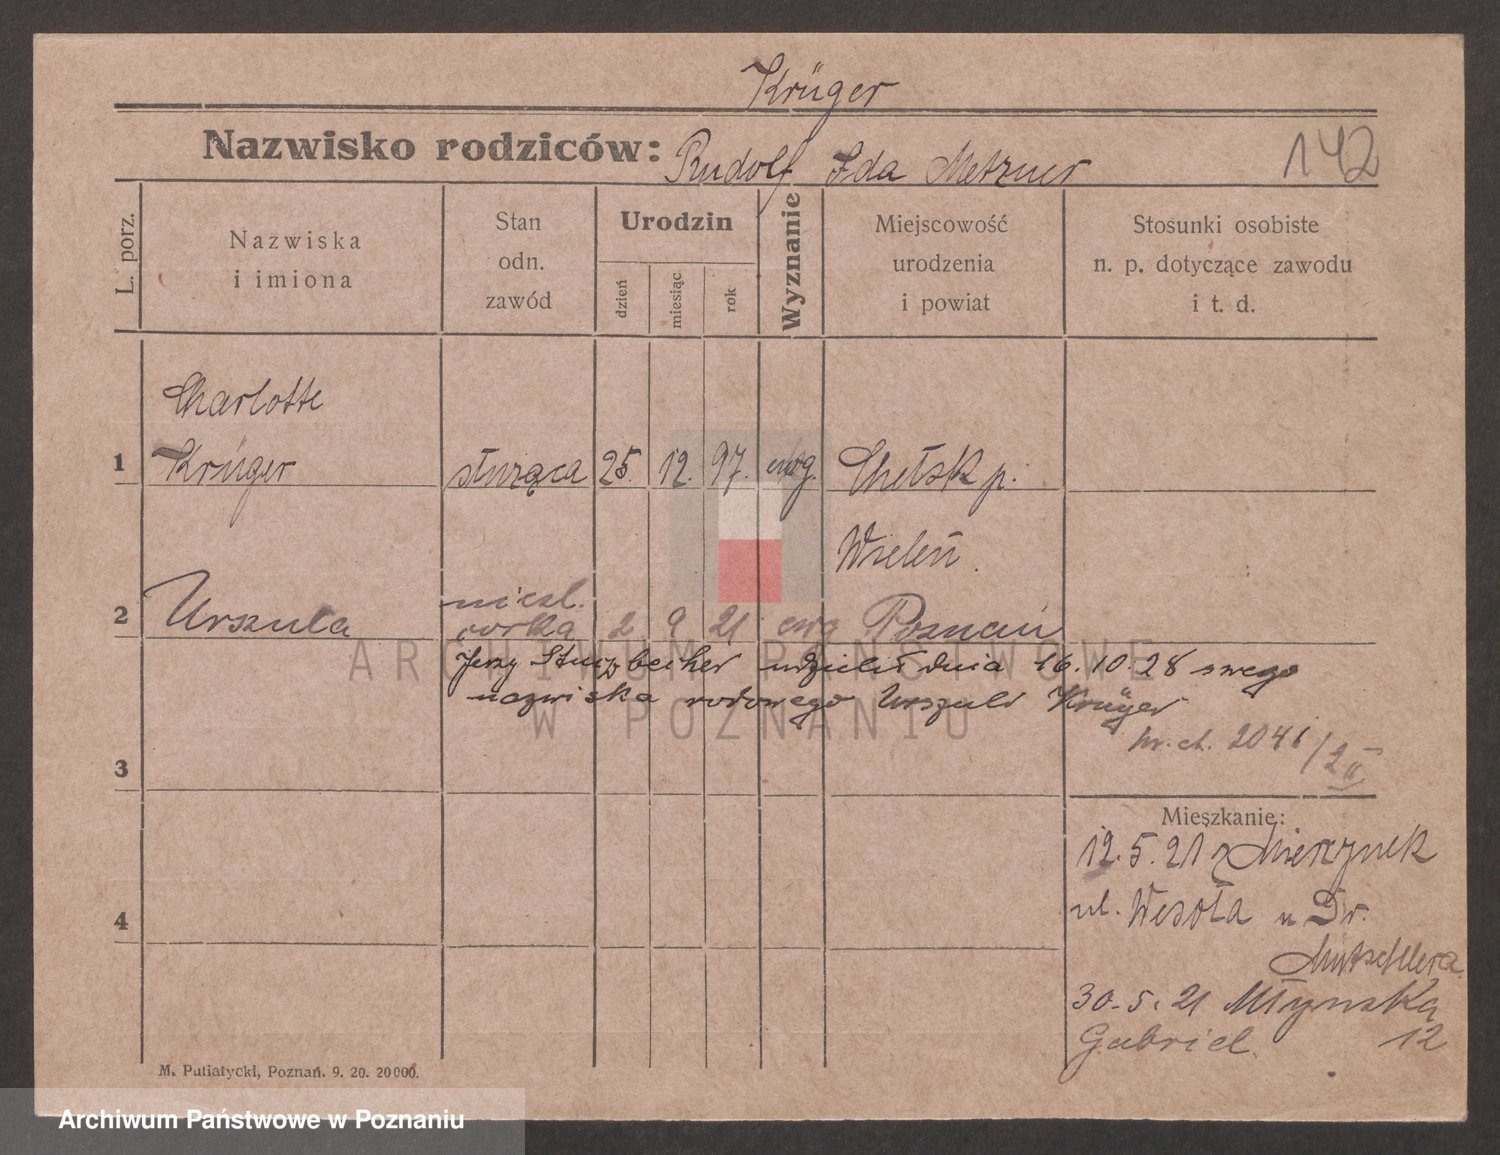 Krüger
Nazwisko rodziców: Rudolf Ida Metzner
142
L. porz.
Nazwiska
i imiona
Stan
odn.
zawód
Urodzin
dzień
miesiąc
rok
Wyznanie
Miejscowość
urodzenia
i powiat
Stosunki osobiste
n. p. dotyczące zawodu
i t. d.
Charlotte
1 Krüger służąca 25. 12. 97. ewg. Chełsk p.
Wieleń.
nieśl.
2 Urszula córka 2 9 21 ewg Poznań
Jerzy udzielił dnia 16.10.28 swego
nazwiska rodowego Urszuli Krüger
nr. ch. 2041/2 II
3
Mieszkanie:
12.5.21 z Mierzynek
4
ul. Wesoła u Dr.
Mutschlera
30.5.21 Młyńska
Gabriel. 12
M. Putiatycki, Poznań. 9. 20. 20000.
ARCHIWUM PAŃSTWOWE
W POZNANIU
Archiwum Państwowe w Poznaniu